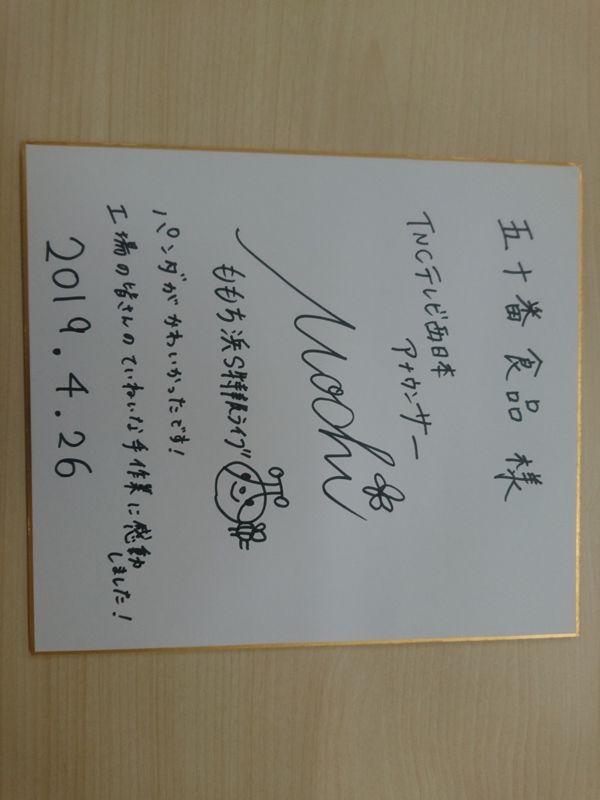 五十番食品 様
TNCテレビ西日本
アナウンサー
Mochi
ももち浜S特報ライブ
パンダがかわいかったです!
工場の皆さんのていねいな手作業に感動
しました!
2019.4.26